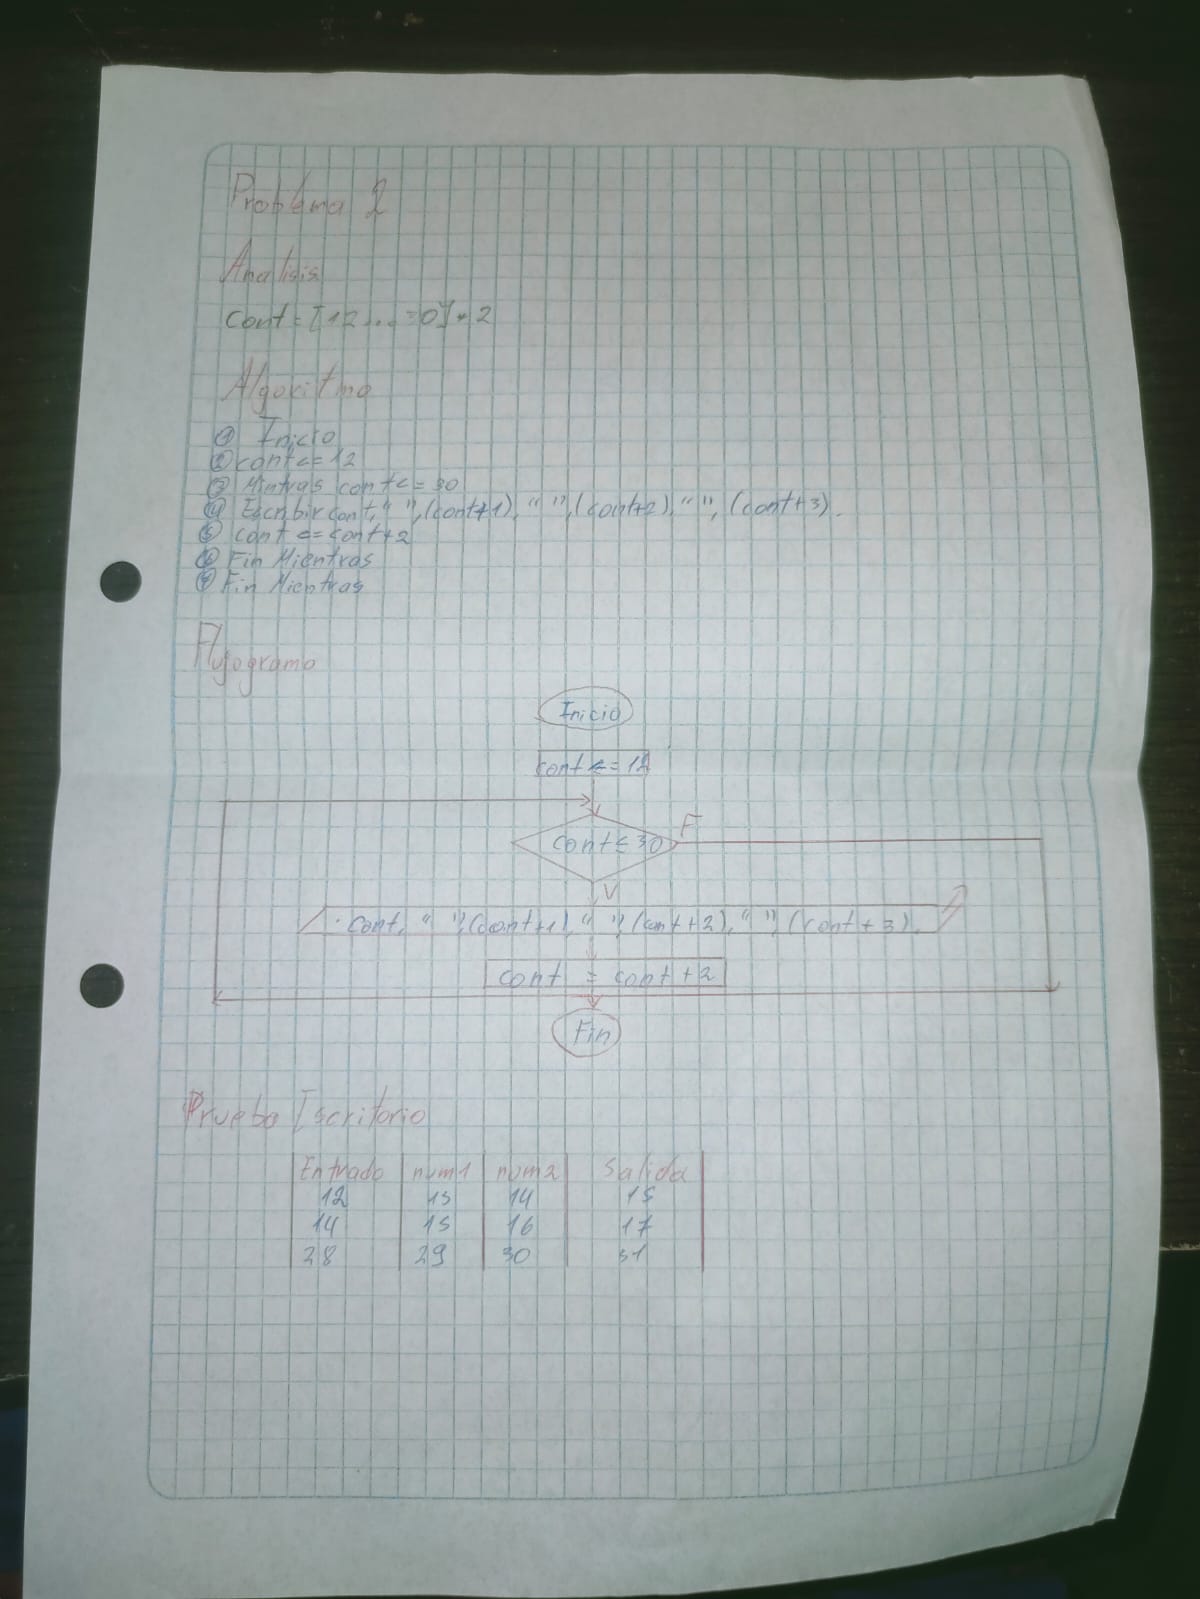 Problema 2
Analisis
cont = [12...30] + 2
Algoritmo
① Inicio
② cont <= 12
③ Mintras cont <= 30
④ Escribir cont, " ", (cont+1), " ", (cont+2), " ", (cont+3).
⑤ cont <= cont+2
⑥ Fin Mientras
⑦ Fin Mientras
Flujogramo
Inicio
cont <= 12
cont ≤ 30 F
V
cont, " ", (cont+1), " ", (cont+2), " ", (cont+3).
cont = cont + 2
Fin
Prueba Escritorio
Entrada num1 num2 Salida
12 13 14 15
14 15 16 17
28 29 30 31